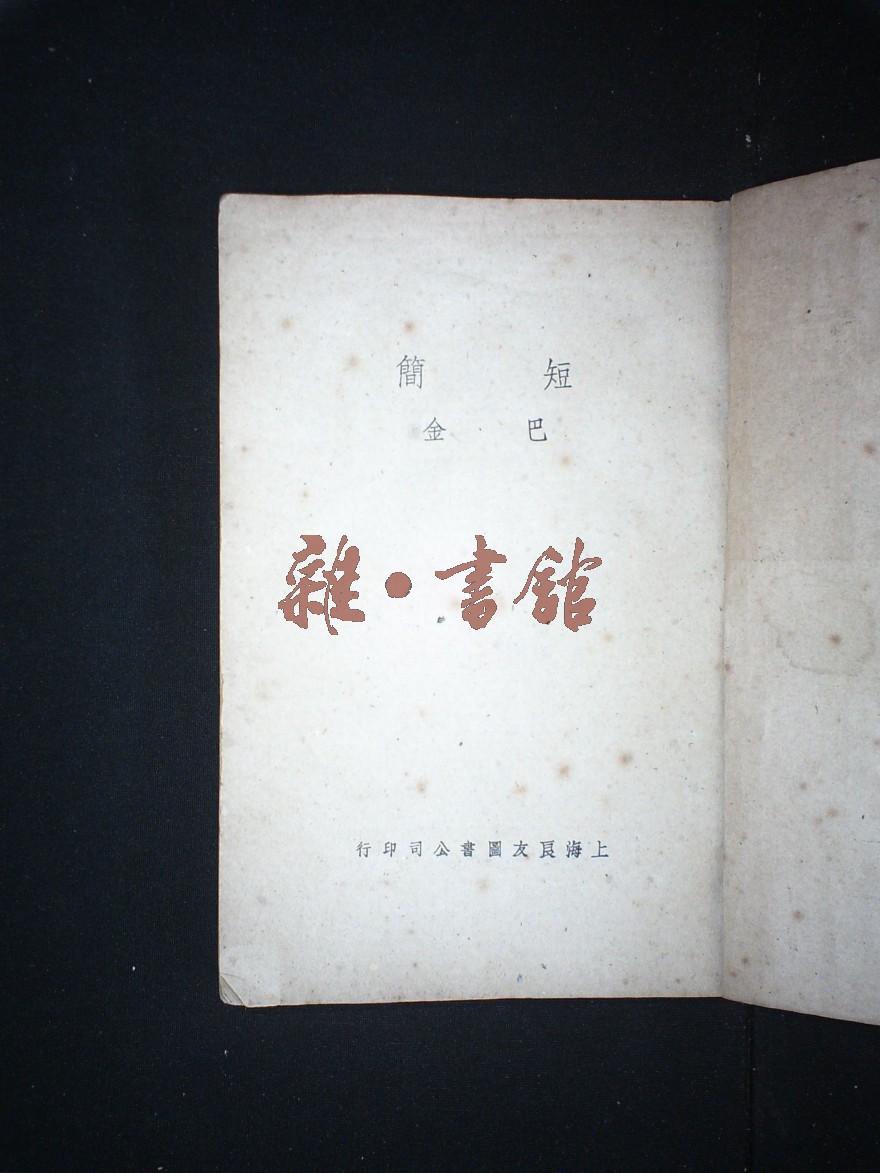 短簡
巴金
雜•書館
上海良友圖書公司印行